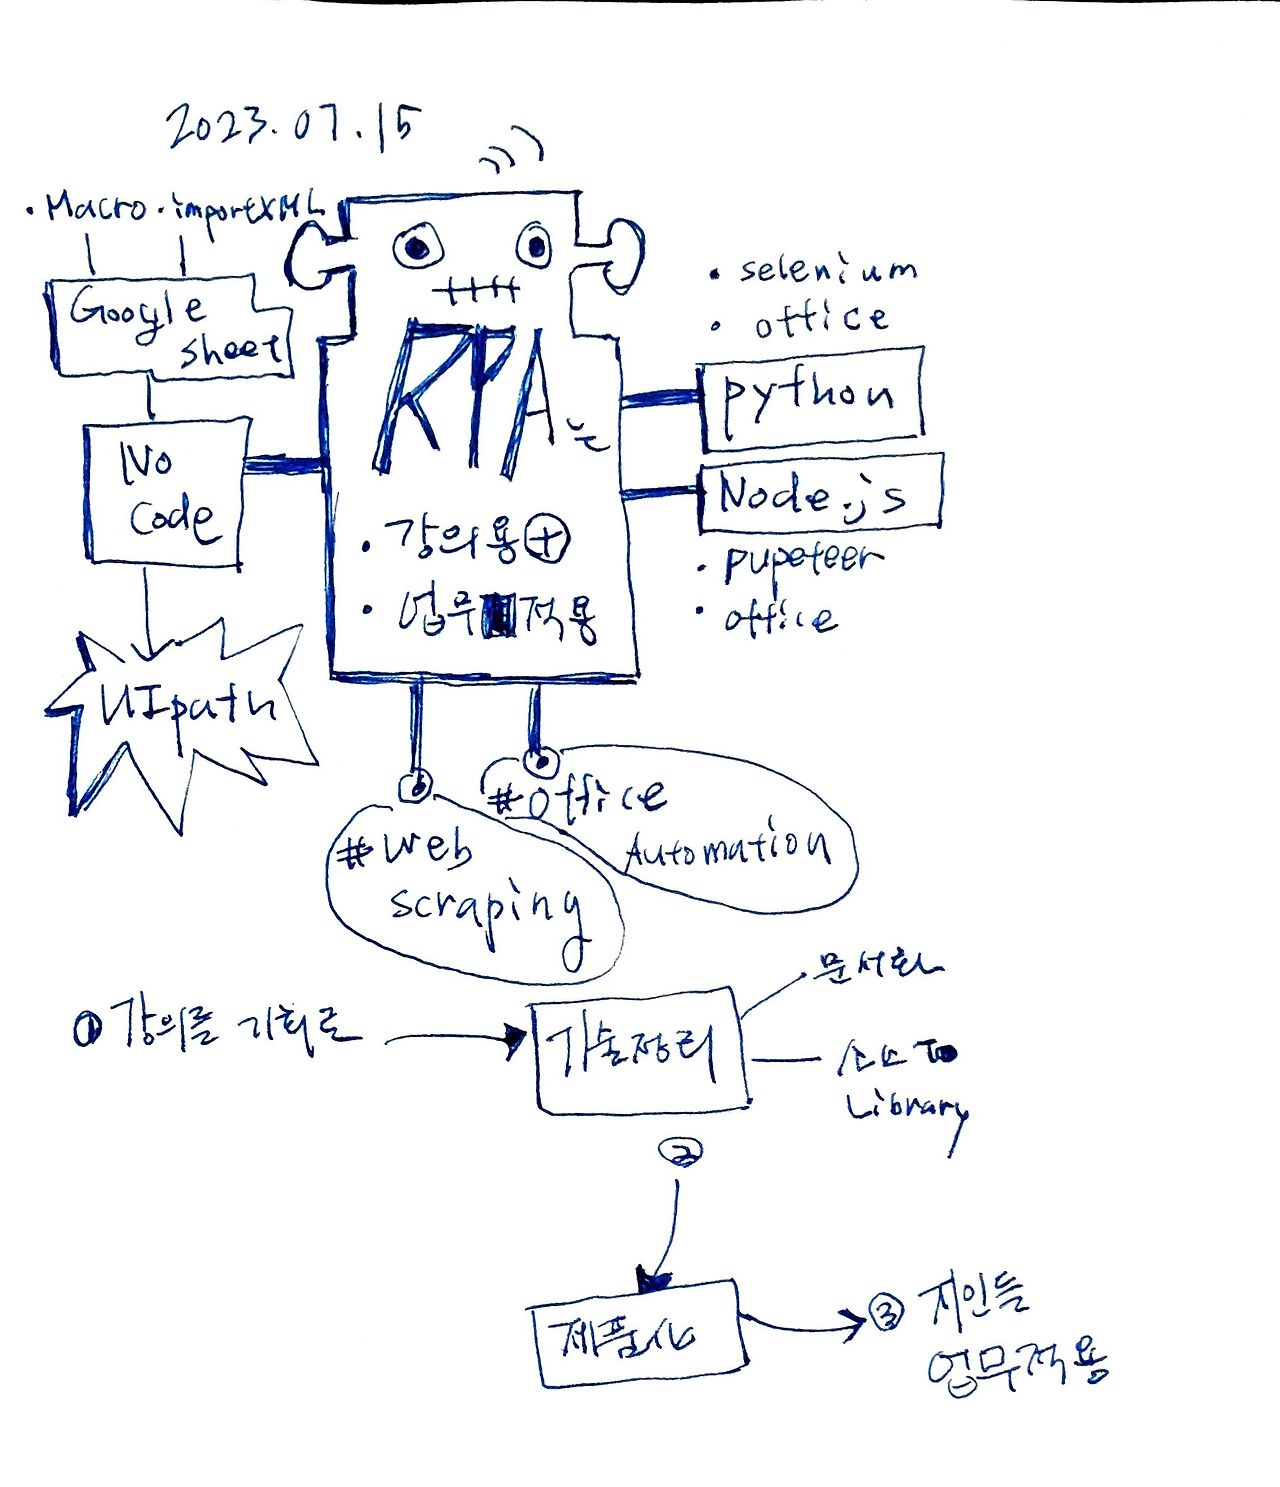 2023.07.15
· Macro · importXML
Google
sheet
No
Code
UIpath
RPA는
· 강의용 +
· 업무 적용
· selenium
· office
python
Node.js
· pupeteer
· office
#office
Automation
#web
scraping
① 강의를 기회로
기술정리
문서화
소스 To
Library
②
제품화
③ 지인들
업무적용